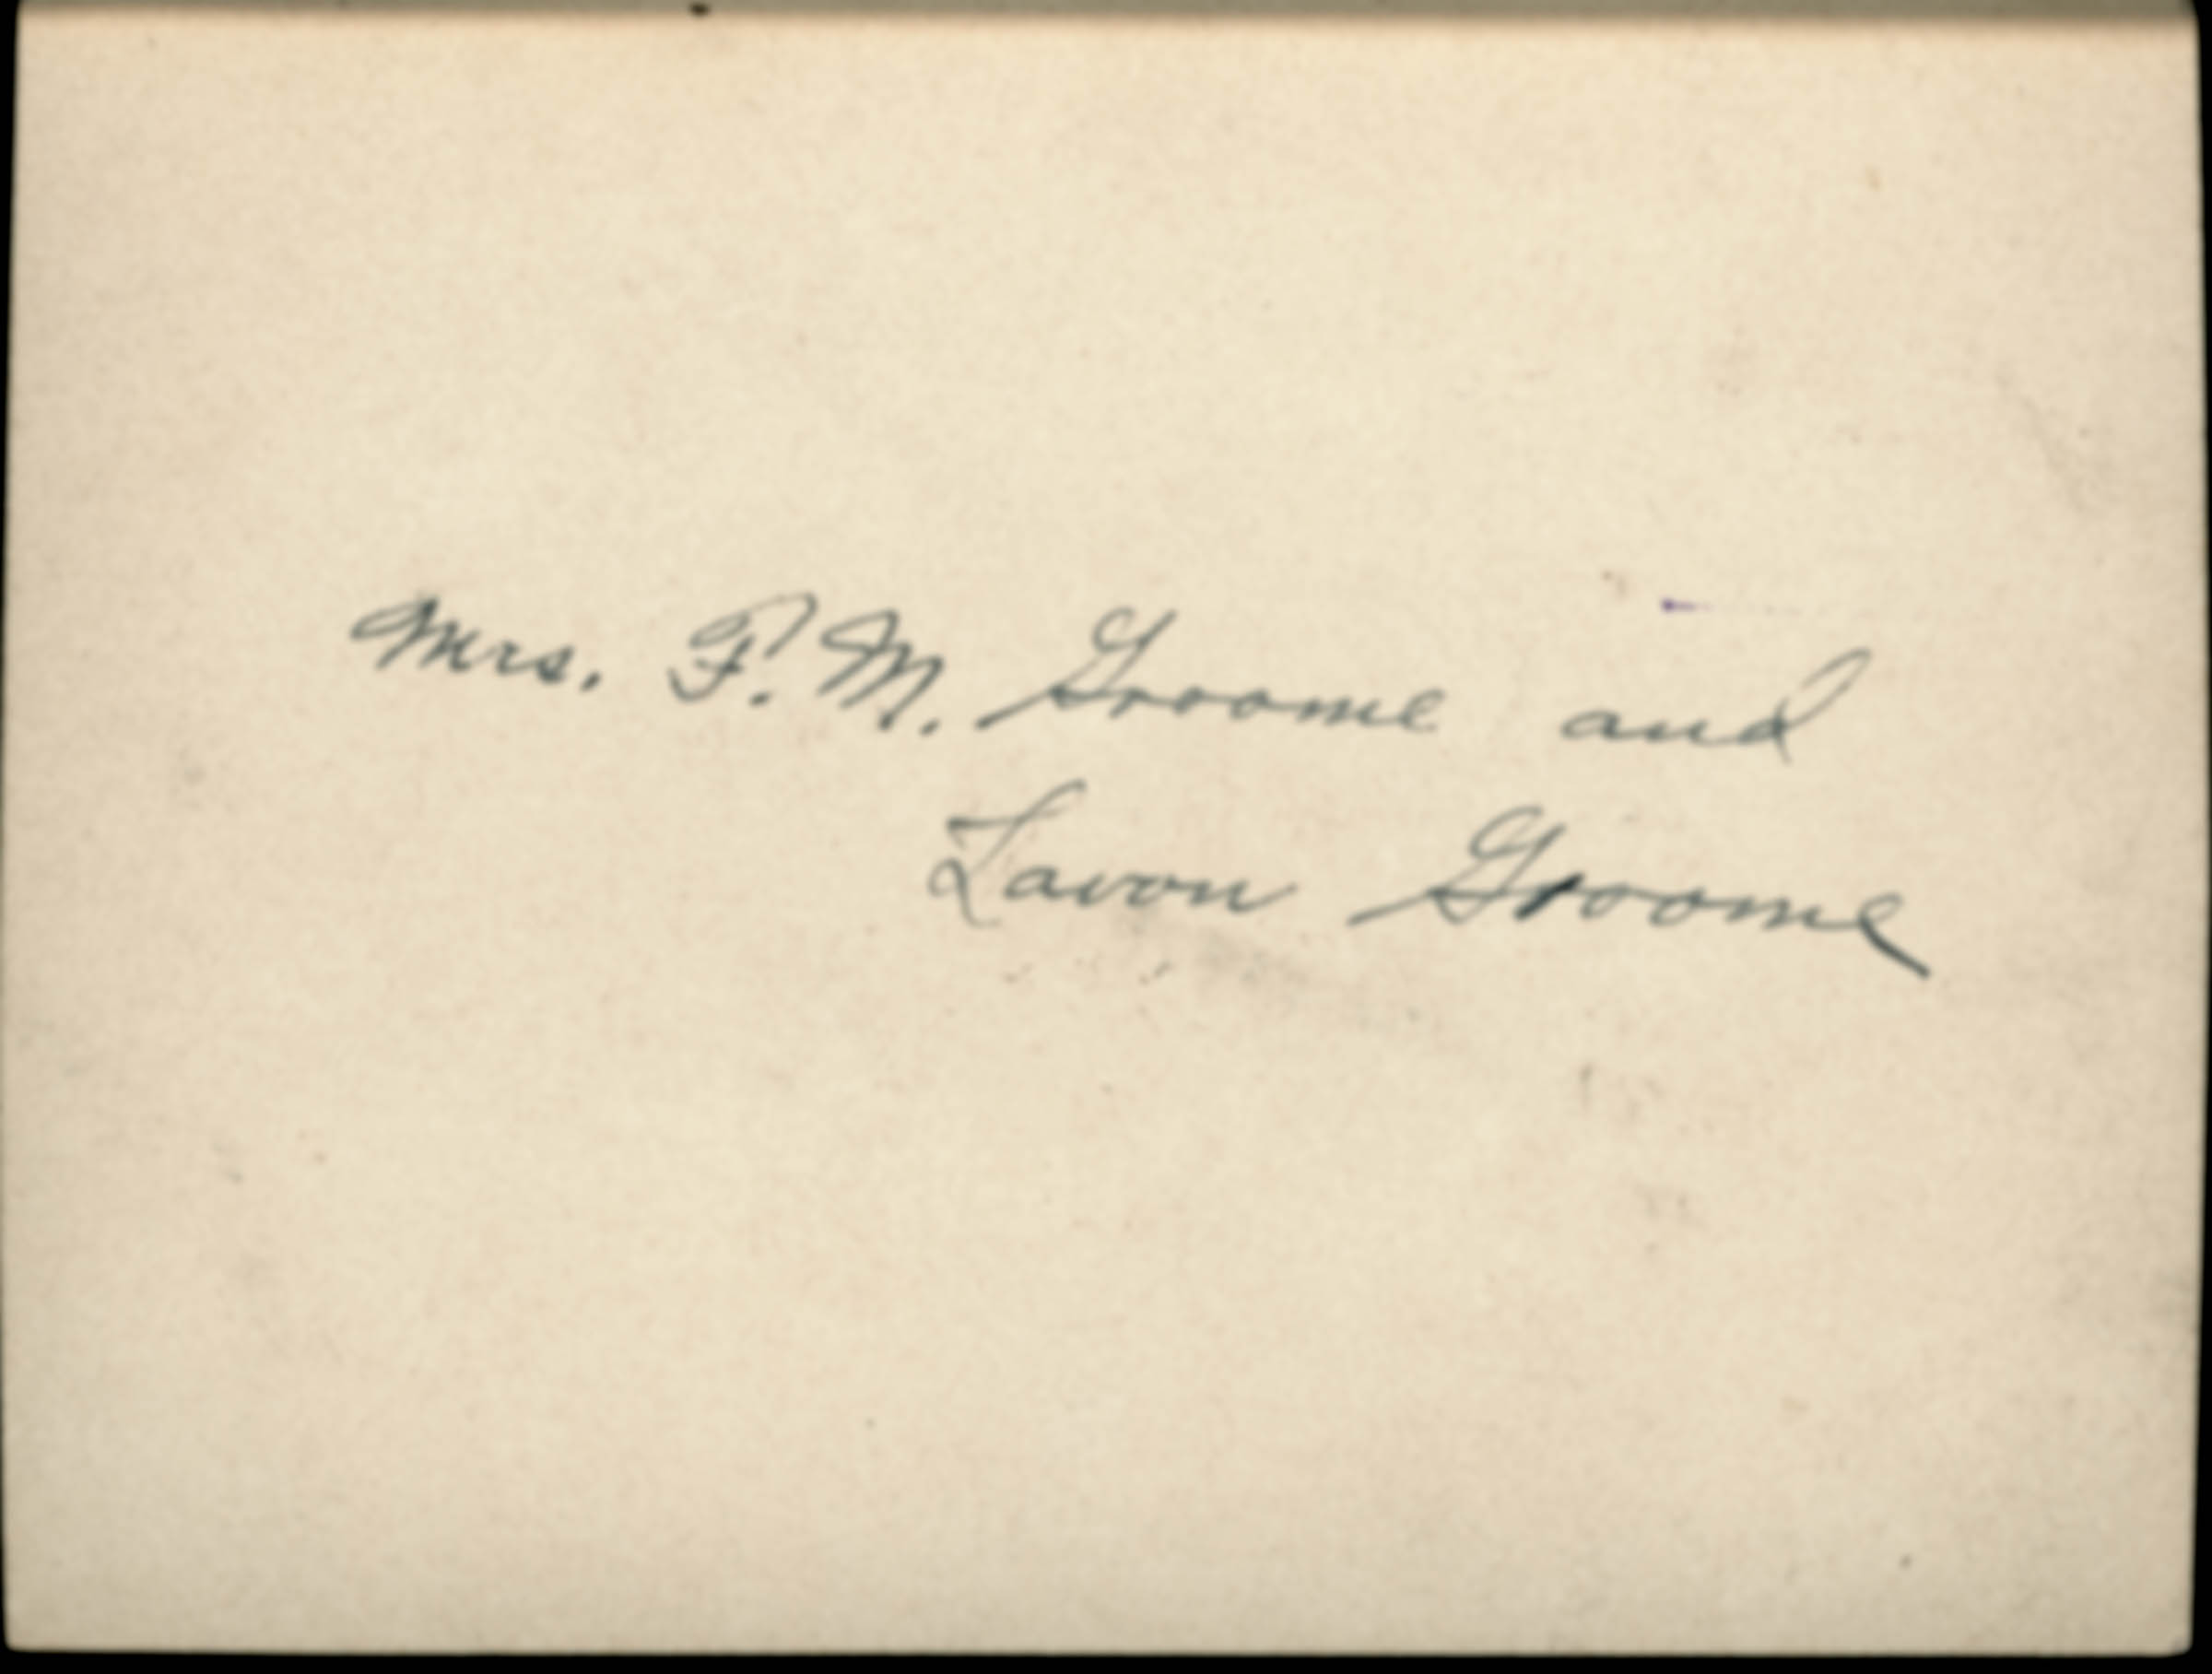 Mrs. F. M. Groome and
Lavon Groome